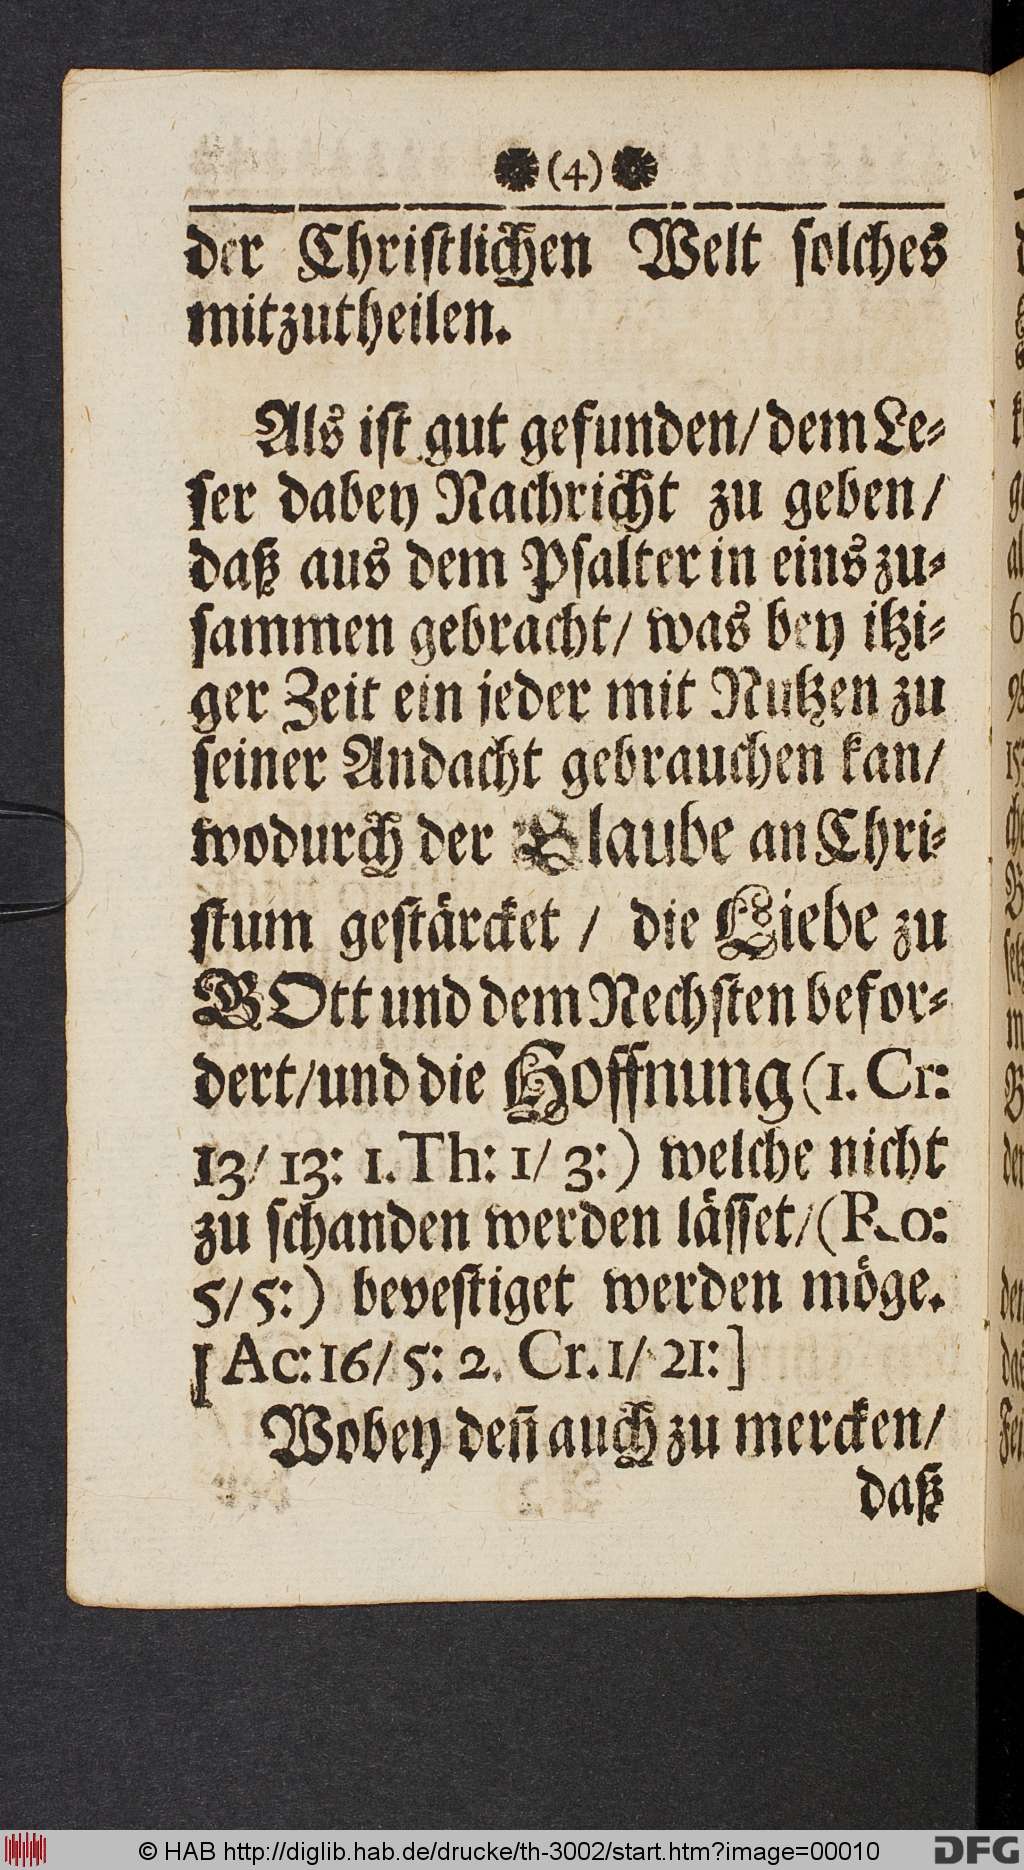 (4)
der Christlichen Welt solches
mitzutheilen.
Als ist gut gefunden/ dem Le⸗
ser dabey Nachricht zu geben/
daß aus dem Psalter in eins zu⸗
sammen gebracht/ was bey itzi⸗
ger Zeit ein jeder mit Nutzen zu
seiner Andacht gebrauchen kan/
wodurch der Glaube an Chri⸗
stum gestärcket / die Liebe zu
GOtt und dem Nechsten befor⸗
dert/und die Hoffnung (1. Cr:
13/ 13: 1. Th: 1/ 3:) welche nicht
zu schanden werden lässet/(Ro:
5/5:) bevestiget werden möge.
[Ac:16/5: 2. Cr.1/ 21:]
Wobey deñ auch zu mercken/
daß
© HAB http://diglib.hab.de/drucke/th-3002/start.htm?image=00010
DFG